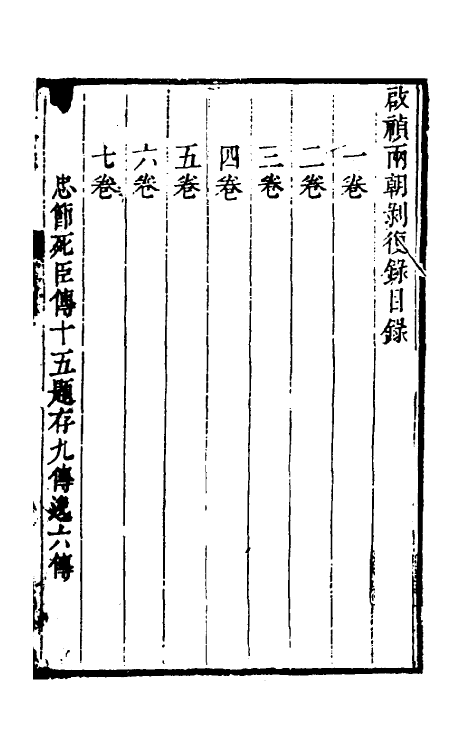 啟禎兩朝剝復錄目錄
一卷
二卷
三卷
四卷
五卷
六卷
七卷
忠節死臣傳十五題存九傳逸六傳